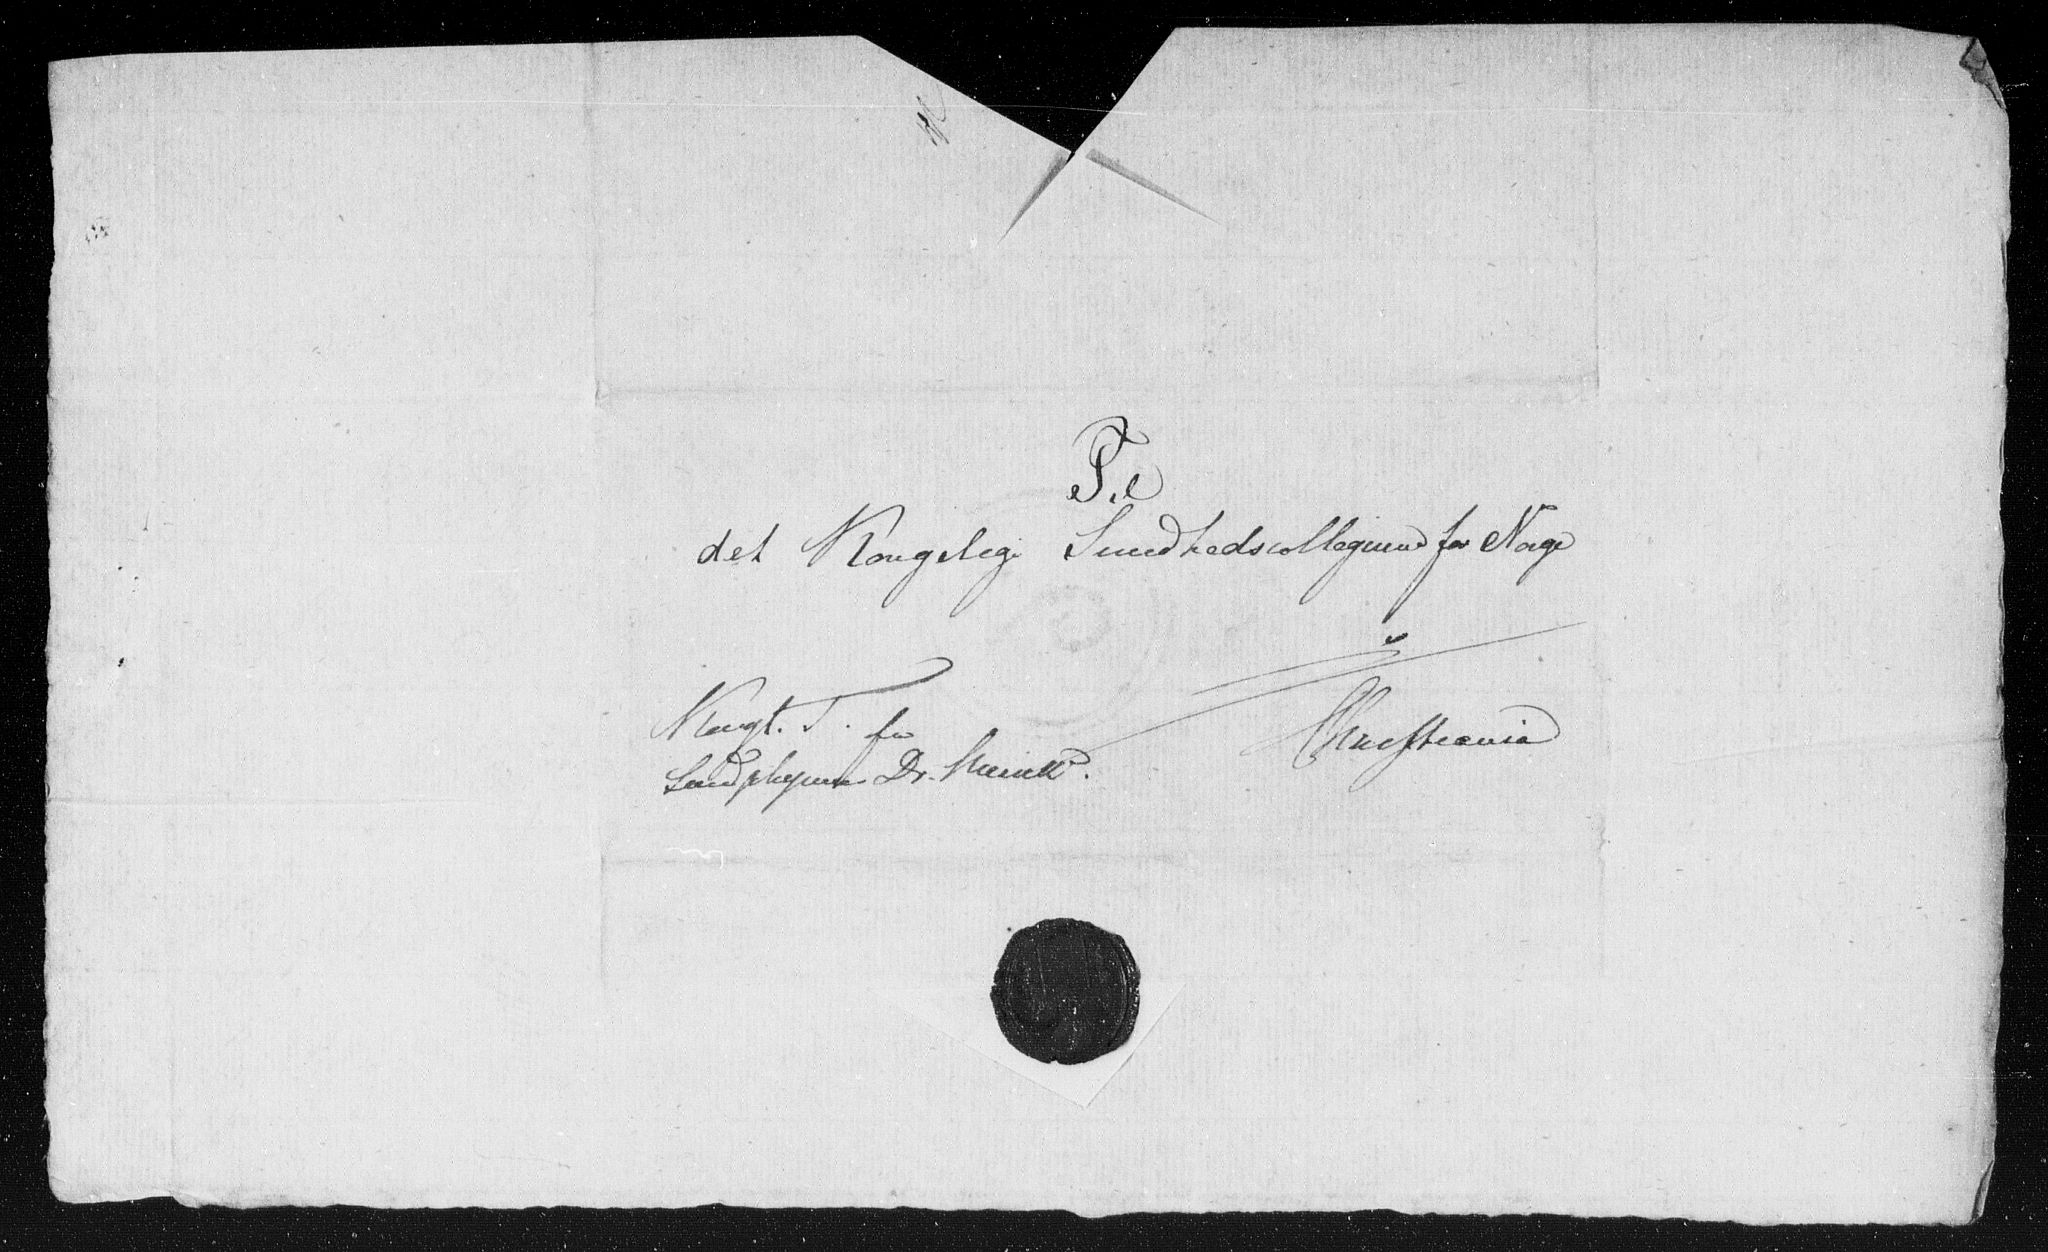 Til
det Kongelige Sundhedscollegium for Norge
Christiania
Kongl. T. fra
Landphysicus Dr.